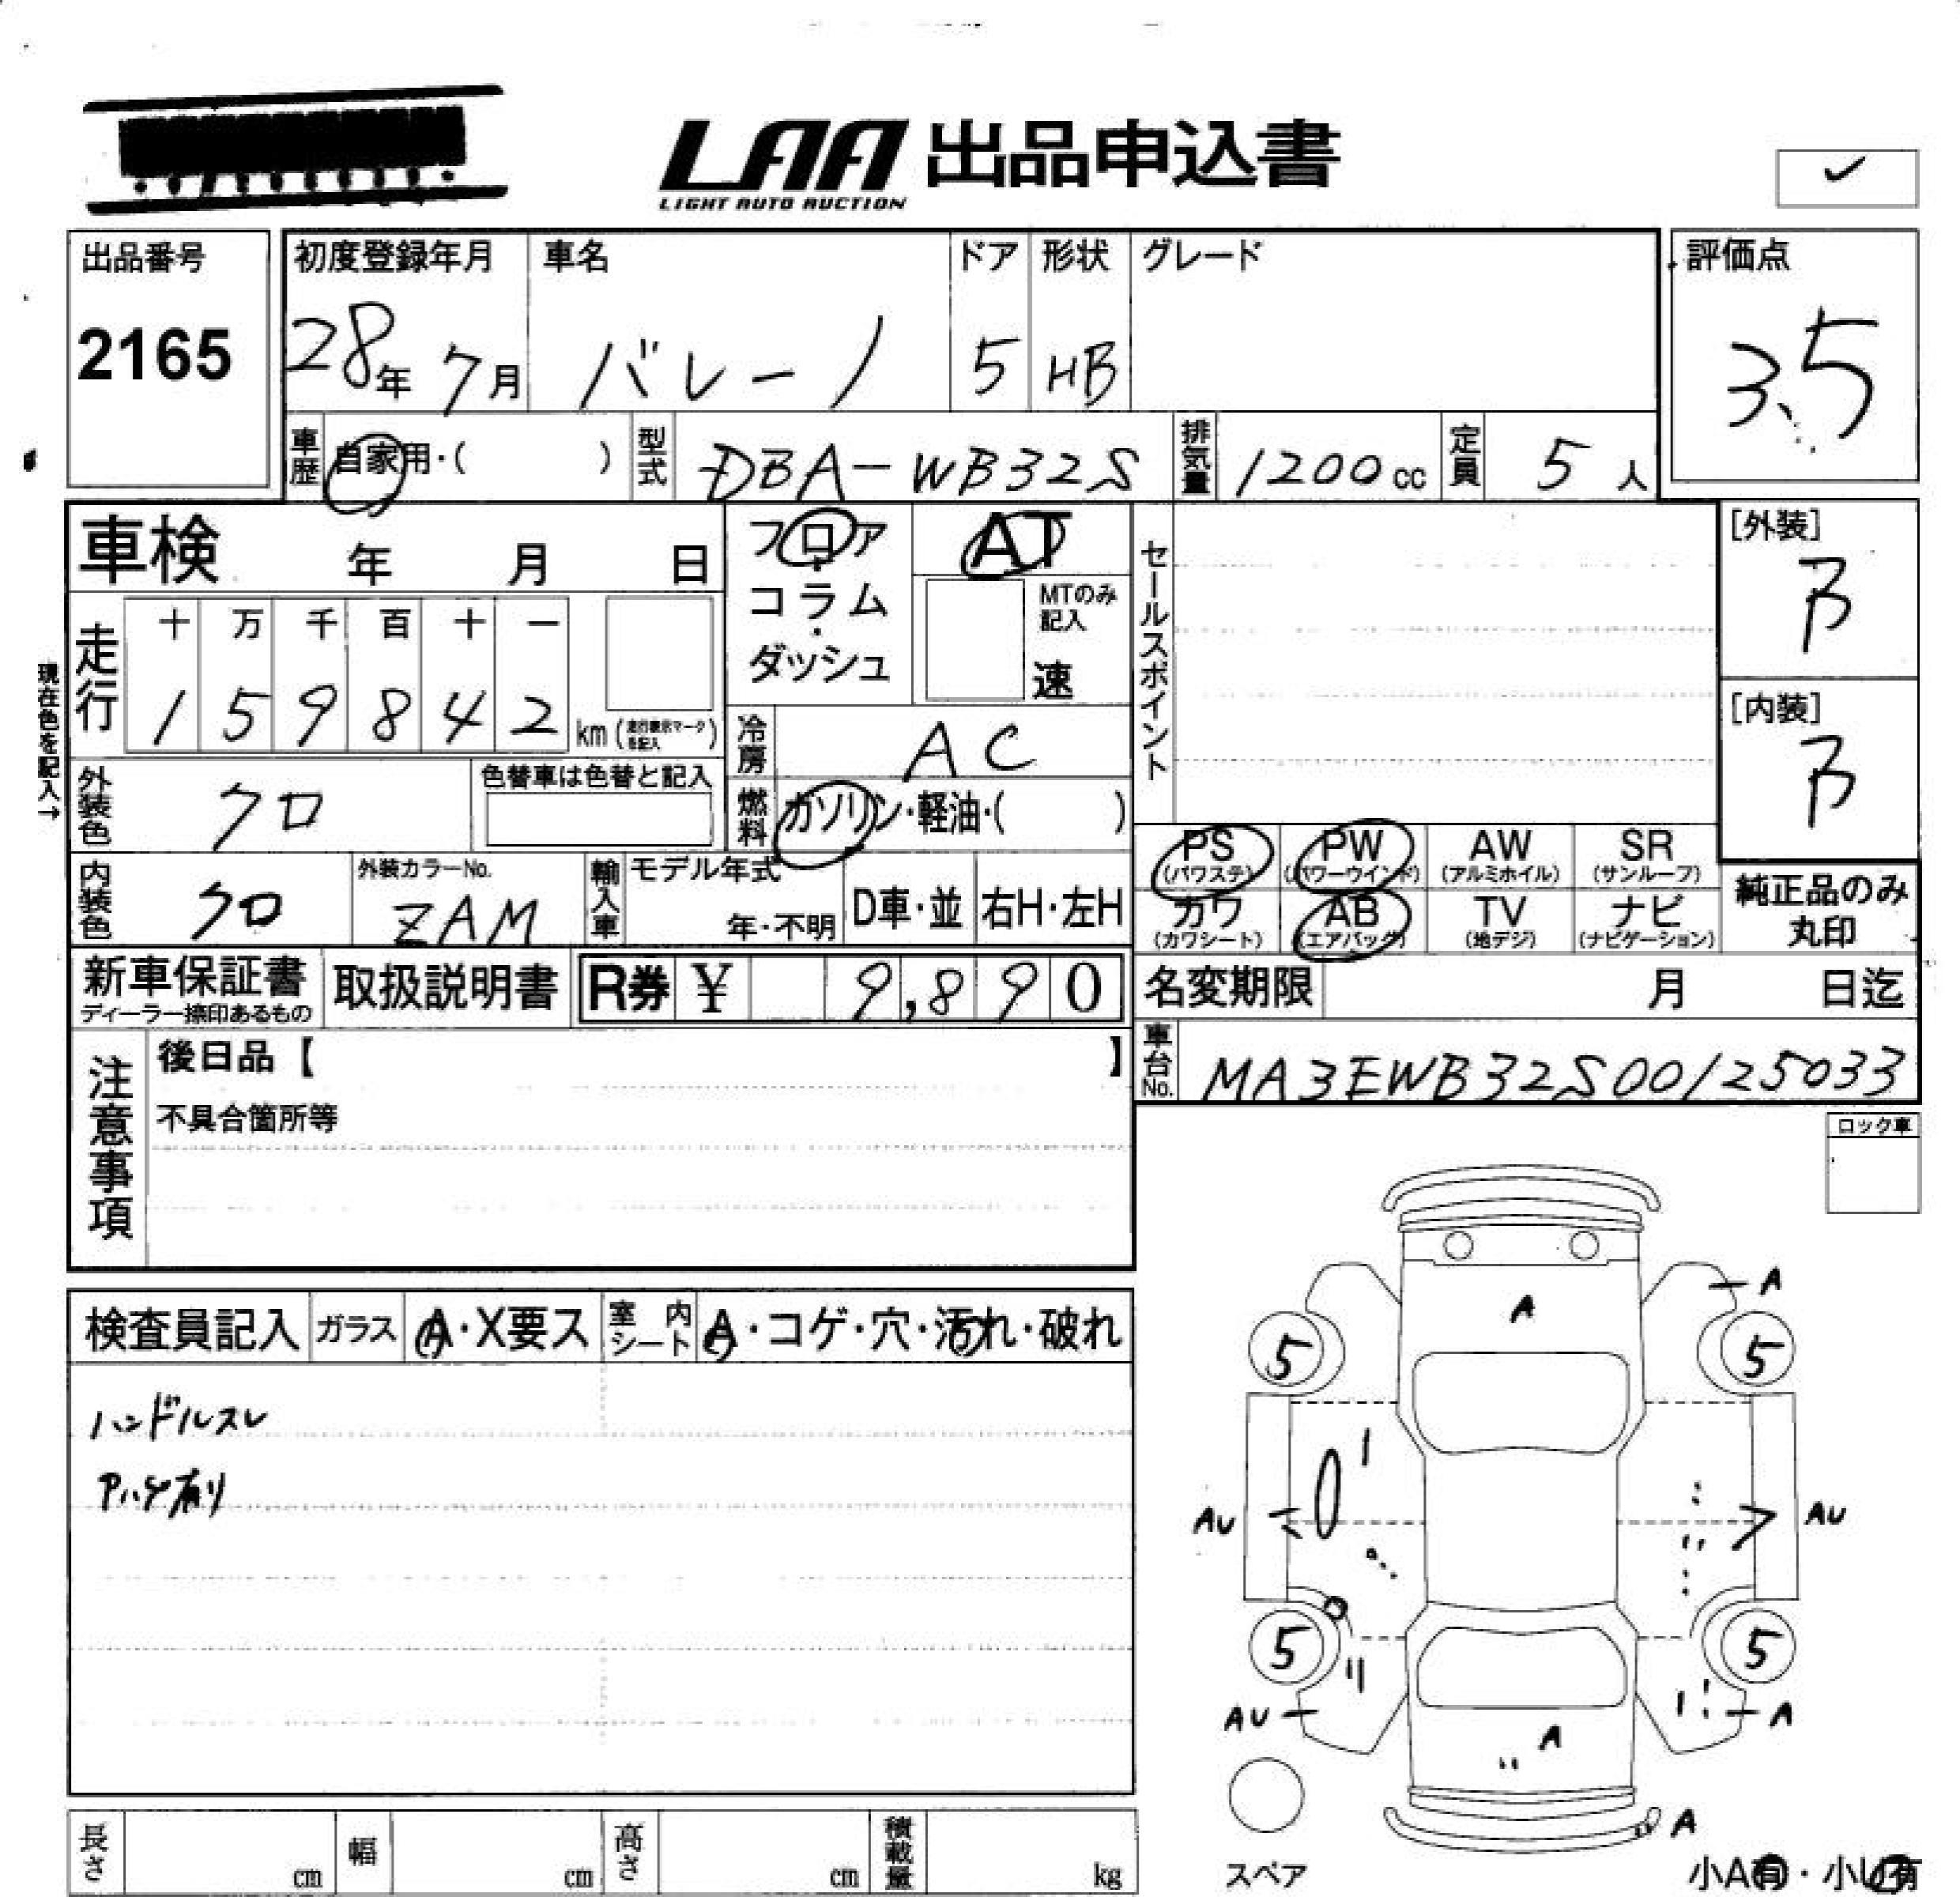 LAA 出品申込書
LIGHT AUTO AUCTION
✓
出品番号
2165
初度登録年月
28年 7月
車名
バレーノ
ドア
5
形状
HB
グレード
評価点
3.5
車歴 自家用・( )
型式 DBA-WB32S
排気量 1200cc
定員 5人
車検 年 月 日
フロア・コラム・ダッシュ
AT
MTのみ記入
速
セールスポイント
[外装]
B
[内装]
B
現在色を記入→
走行
十 万 千 百 十 一
1 5 9 8 4 2 km (走行表示マークを記入)
冷房 AC
外装色 クロ
色替車は色替と記入
燃料 ガソリン・軽油・( )
PS (パワステ)
PW (パワーウインド)
AW (アルミホイル)
SR (サンルーフ)
内装色 クロ
外装カラーNo.
ZAM
輸入車
モデル年式
年・不明
D車・並
右H・左H
カワ (カワシート)
AB (エアバッグ)
TV (地デジ)
ナビ (ナビゲーション)
純正品のみ丸印
新車保証書
ディーラー捺印あるもの
取扱説明書
R券 ¥ 9,890
名変期限 月 日迄
車台No. MA3EWB32S00125033
注意事項
後日品【 】
不具合箇所等
ロック車
検査員記入
ガラス A・X要ス
室内シート A・コゲ・穴・汚れ・破れ
ハンドルスレ
Pハゲ有り
A
A
5
5
AU
AU
5
5
AU
A
A
A
スペア
小A有・小U有
長さ cm
幅 cm
高さ cm
積載量 kg